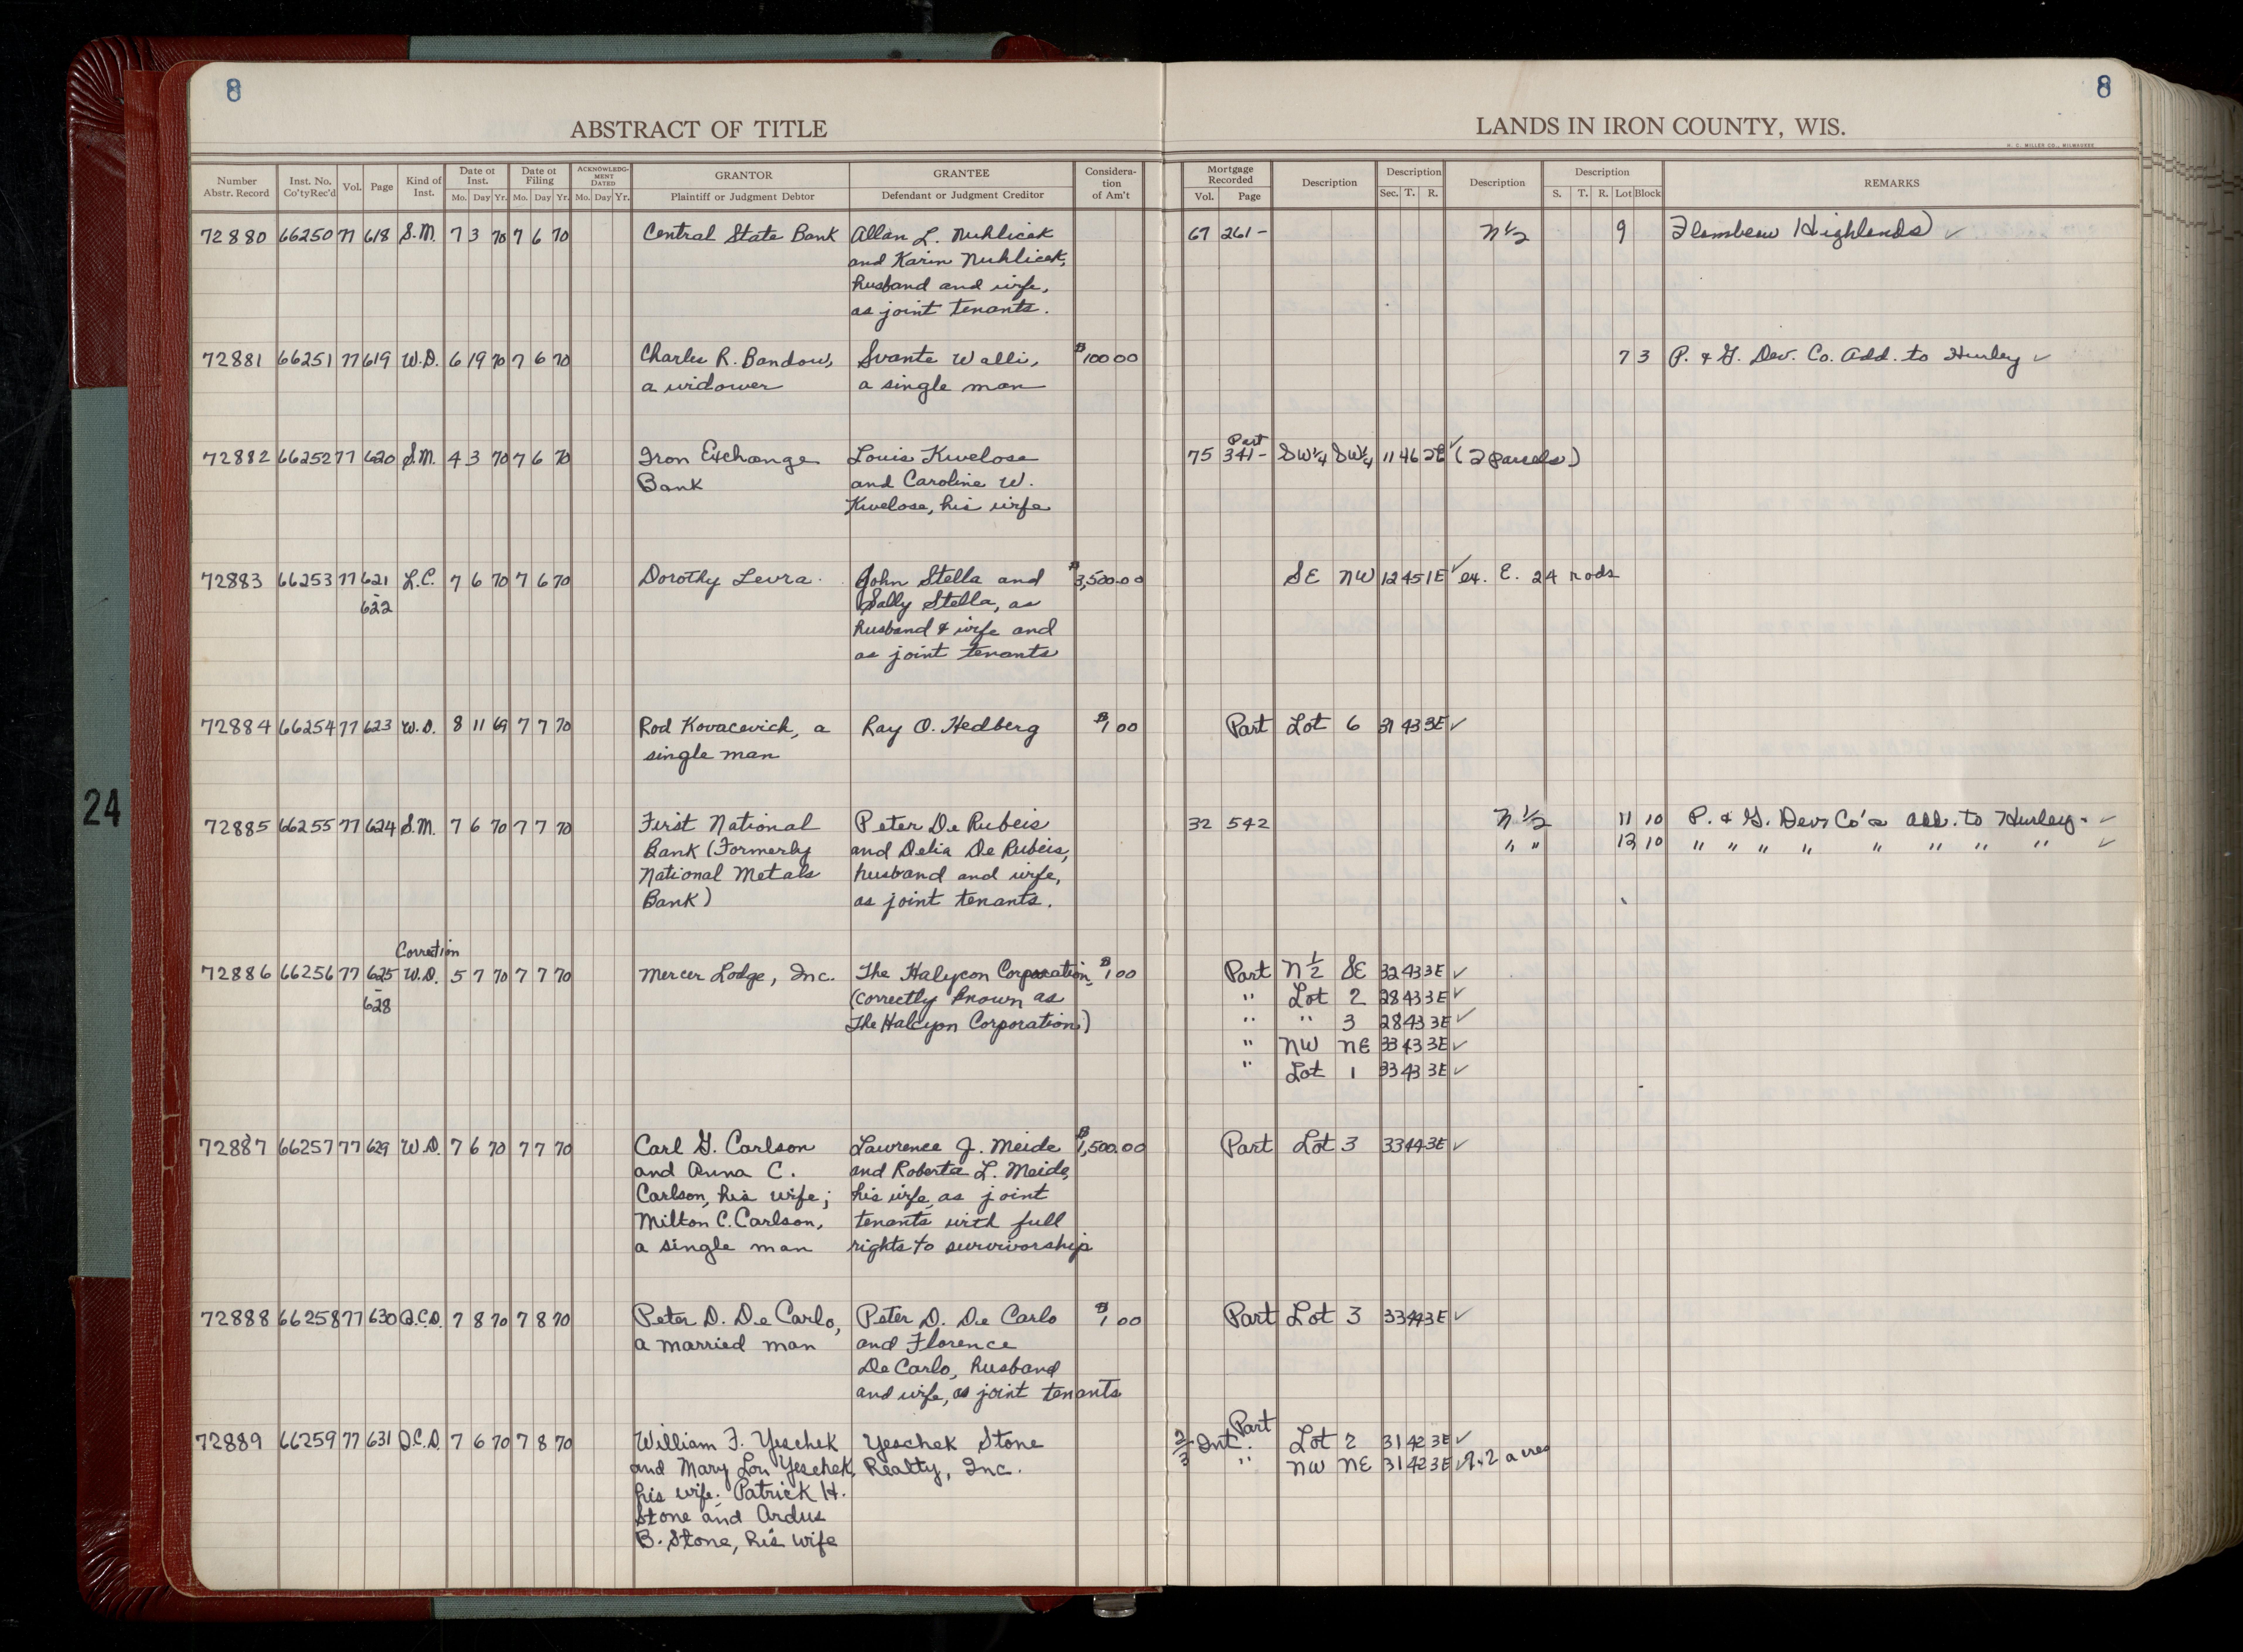 8
8
ABSTRACT OF TITLE
LANDS IN IRON COUNTY, WIS.
H. C. MILLER CO., MILWAUKEE
Number Abstr. Record Inst. No. Co'ty Rec'd Vol. Page Kind of Inst. Date of Inst. Mo. Day Yr. Date of Filing Mo. Day Yr. ACKNOWLEDGMENT DATED Mo. Day Yr. GRANTOR Plaintiff or Judgment Debtor GRANTEE Defendant or Judgment Creditor Consideration of Am't Mortgage Recorded Vol. Page Description Description Sec. T. R. Description Description S. T. R. Lot Block REMARKS
72880 66250 77 618 S.M. 7 3 70 7 6 70 Central State Bank Allan L. Nuhlicek 67 261- N½ 9 Flambeau Highlands ✓
and Karin Nuhlicek,
husband and wife,
as joint tenants.
72881 66251 77 619 W.D. 6 19 70 7 6 70 Charles R. Bandow, Svante Walli, $100 00 7 3 P. & G. Dev. Co. Add. to Hurley ✓
a widower a single man
Part
72882 66252 77 620 S.M. 4 3 70 7 6 70 Iron Exchange Louis Kwelose 75 341- SW¼ SW¼ 11 46 2E ✓ (2 parcels)
Bank and Caroline W.
Kwelose, his wife
72883 66253 77 621 L.C. 7 6 70 7 6 70 Dorothy Levra. John Stella and $3,500.00 SE NW 12 45 1E ✓ ex. E. 24 rods
-622 Sally Stella, as
husband & wife and
as joint tenants
72884 66254 77 623 W.D. 8 11 69 7 7 70 Rod Kovacevich, a Ray O. Hedberg $1 00 Part Lot 6 31 43 3E ✓
single man
72885 66255 77 624 S.M. 7 6 70 7 7 70 First National Peter De Rubeis 32 542 N½ 11 10 P. & G. Dev. Co's Add. to Hurley. ✓
Bank (Formerly and Delia De Rubeis, " " 12 10 " " " " " " " " ✓
National Metals husband and wife,
Bank) as joint tenants.
Correction
72886 66256 77 625 W.D. 5 7 70 7 7 70 Mercer Lodge, Inc. The Halycon Corporation, $1 00 Part N½ SE 32 43 3E ✓
-628 (correctly known as " Lot 2 28 43 3E ✓
The Halcyon Corporation) " " 3 28 43 3E ✓
" NW NE 33 43 3E ✓
" Lot 1 33 43 3E ✓
72887 66257 77 629 W.D. 7 6 70 7 7 70 Carl G. Carlson Lawrence J. Meide $1,500.00 Part Lot 3 33 44 3E ✓
and Anna C. and Roberta L. Meide,
Carlson, his wife; his wife, as joint
Milton C. Carlson, tenants with full
a single man rights to survivorship
72888 66258 77 630 Q.C.D. 7 8 70 7 8 70 Peter D. De Carlo, Peter D. De Carlo $1 00 Part Lot 3 33 44 3E ✓
a married man and Florence
De Carlo, husband
and wife, as joint tenants
Part
72889 66259 77 631 Q.C.D. 7 6 70 7 8 70 William F. Yeschek Yeschek Stone 2/3 Int. Lot 2 31 42 3E ✓
and Mary Lou Yeschek, Realty, Inc. " NW NE 31 42 3E ✓ 9.2 acres
his wife; Patrick H.
Stone and Ardus
B. Stone, his wife
24